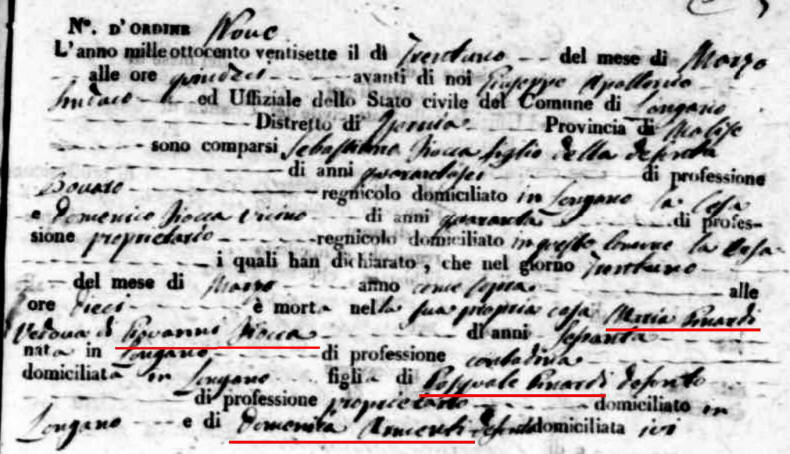 N°. D'ORDINE Nove
L'anno mille ottocento ventisette il dì Trentuno del mese di Marzo
alle ore quindici avanti di noi Giuseppe Apollonio
Sindaco ed Uffiziale dello Stato civile del Comune di Longano
Distretto di Isernia Provincia di Molise
sono comparsi Sebastiano figlio della defonta
di anni quarantasei di professione
Bovaro regnicolo domiciliato in Longano la Casa
e domenico Vicino di anni quaranta di profes-
sione proprietario regnicolo domiciliato in questo Comune la Casa
i quali han dichiarato, che nel giorno Trentuno
del mese di Marzo anno come sopra alle
ore dieci è morta nella sua propria casa Maria
Vedova di Giovanni di anni Sessanta
nata in Longano di professione contadina
domiciliata in Longano figlia di Pasquale defonto
di professione proprietario domiciliato in
Longano e di domenica defonta domiciliata ivi